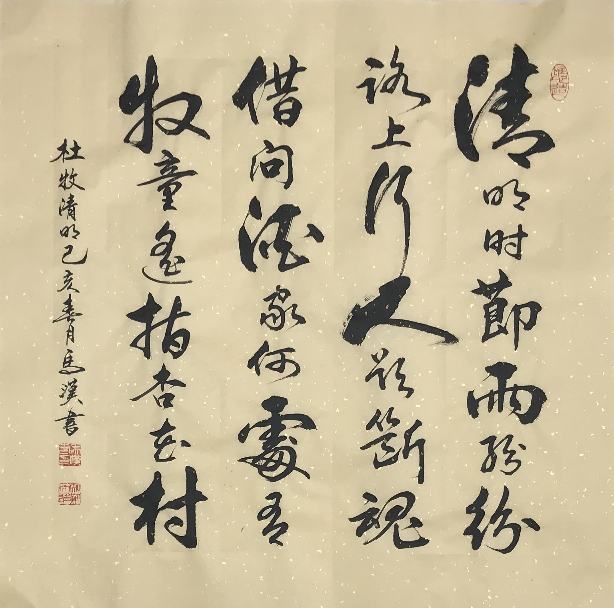 清明时節雨紛紛
路上行人欲斷魂
借问酒家何處有
牧童遙指杏花村
杜牧清明己亥春月馬漢書